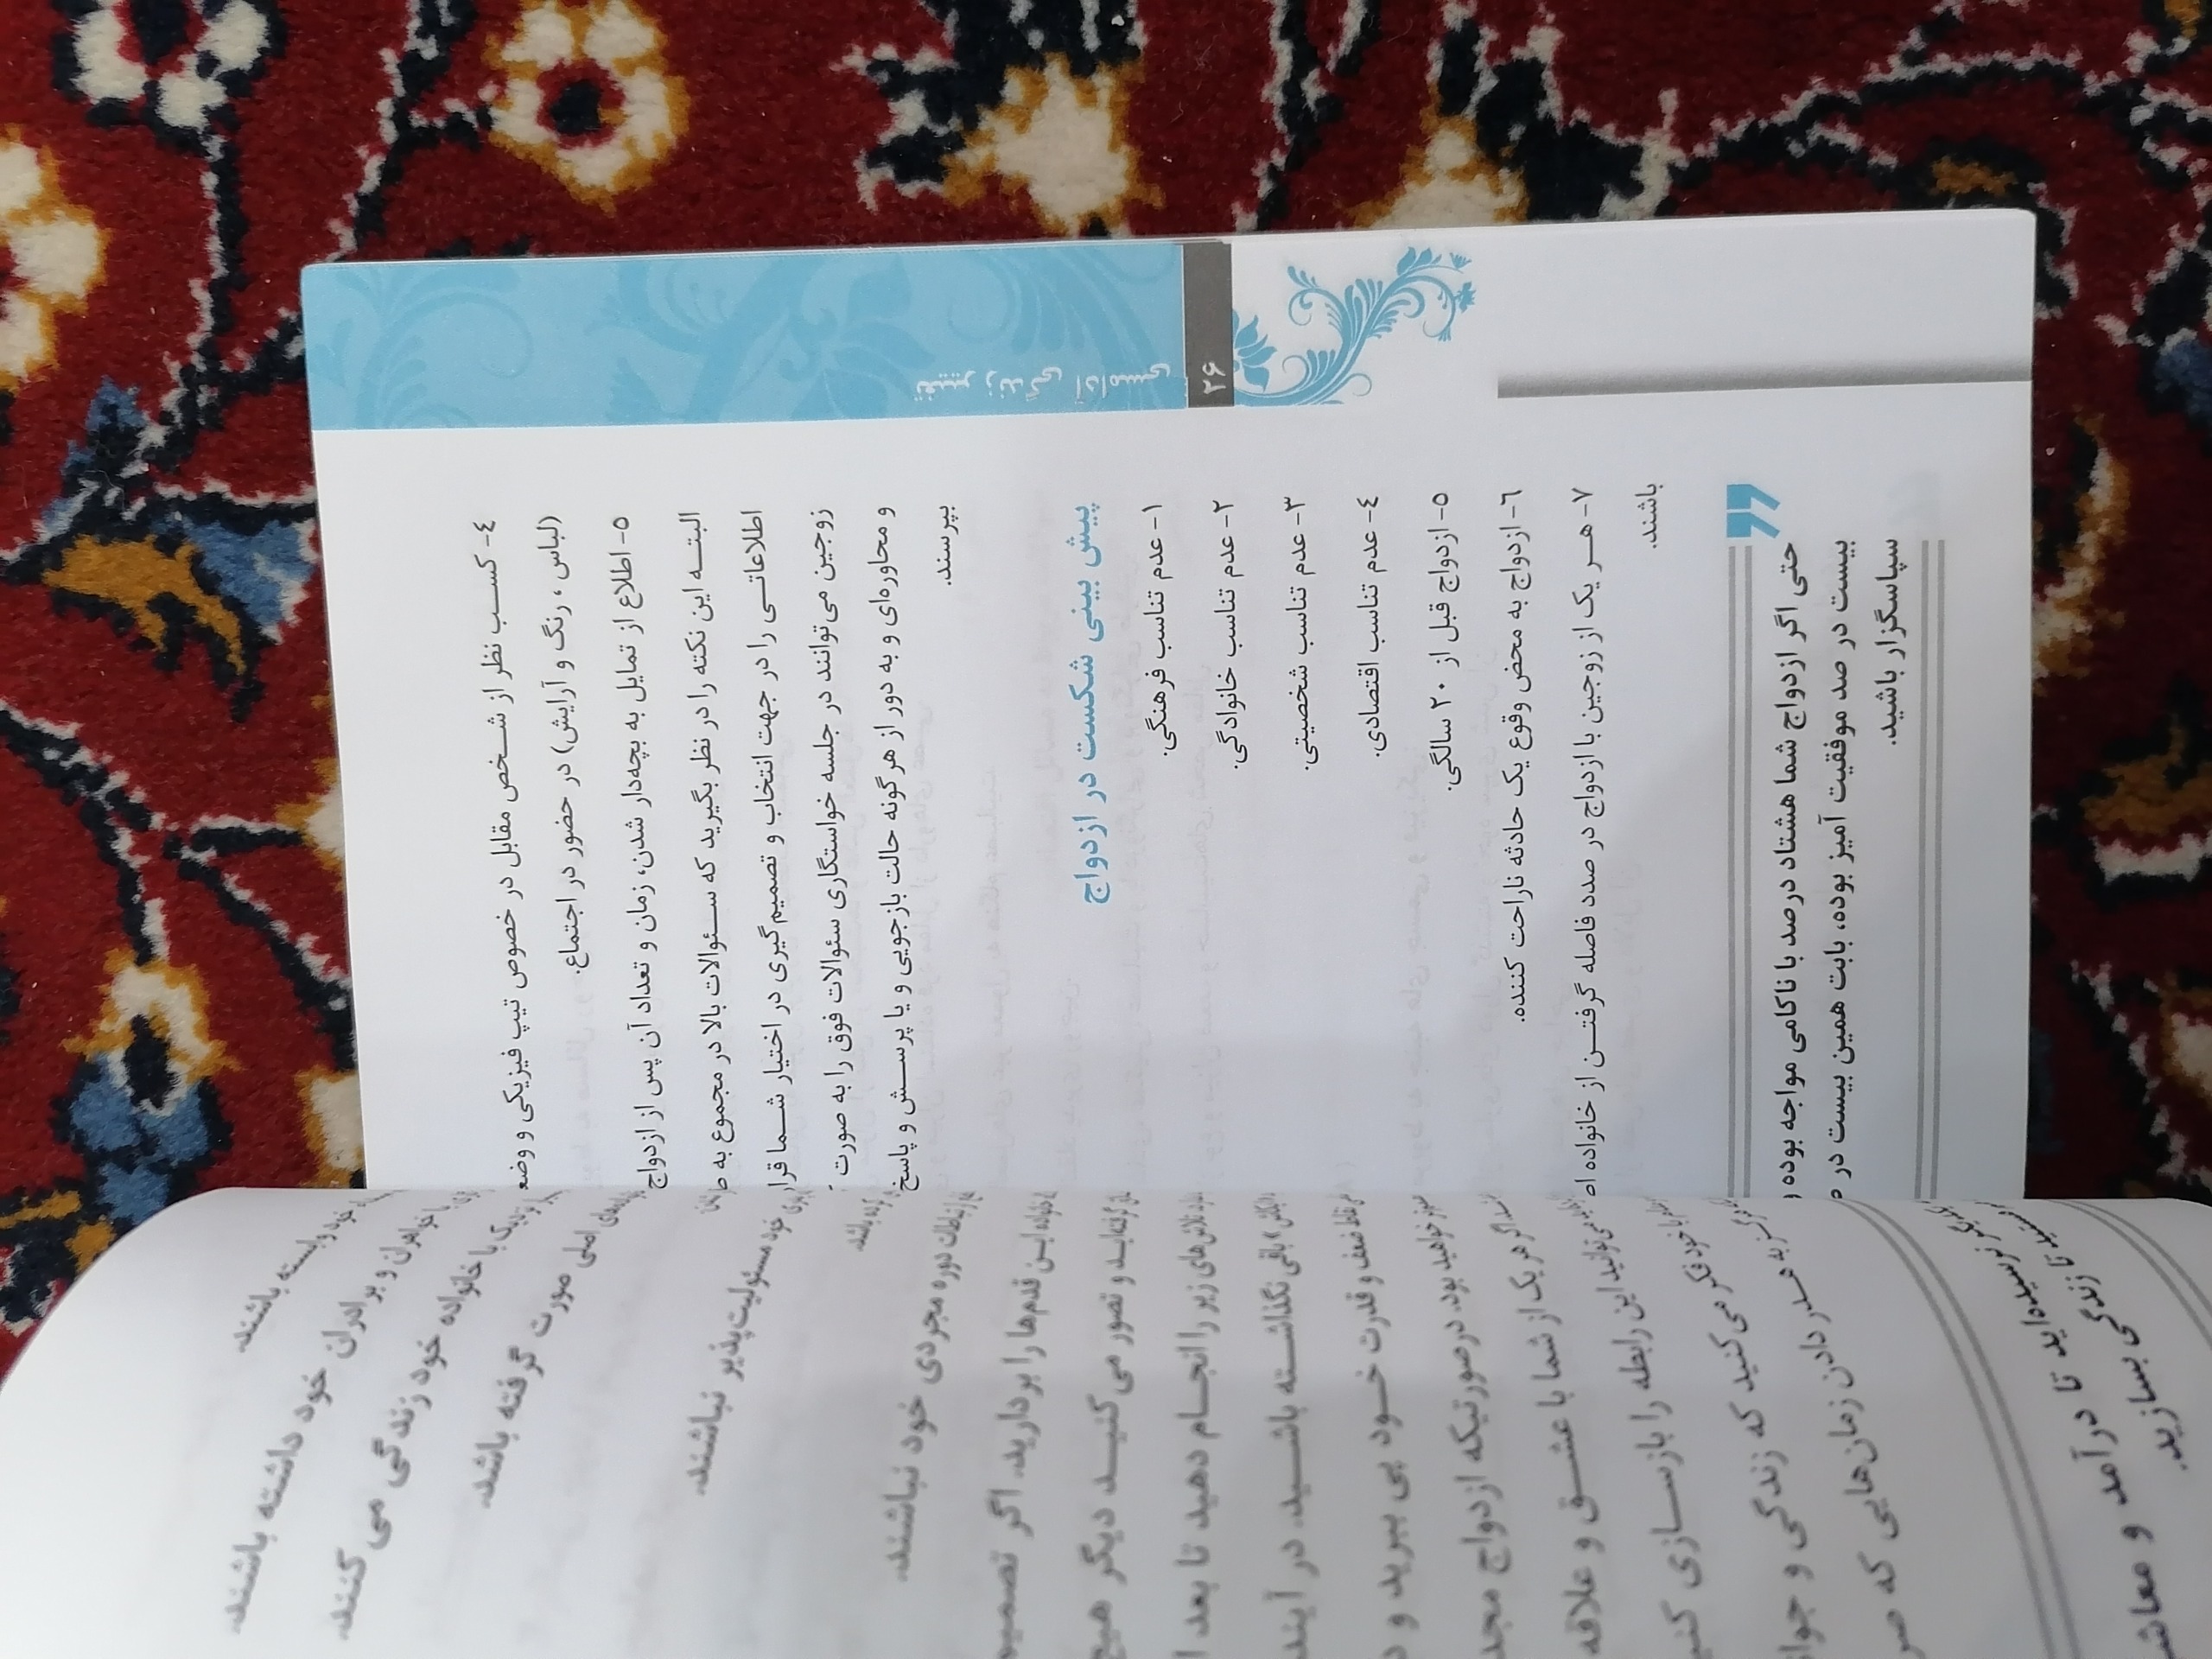 تغییر زندگی آدامسی
۲۶
٤- کسب نظر از شخص مقابل در خصوص تیپ فیزیکی و
(لباس ، رنگ و آرایش) در حضور در اجتماع.
٥- اطلاع از تمایل به بچه‌دار شدن، زمان و تعداد آن پس از ازدواج
البته این نکته را در نظر بگیرید که سئوالات بالا در مجموع به
اطلاعاتی را در جهت انتخاب و تصمیم‌گیری در اختیار شما
زوجین می‌توانند در جلسه خواستگاری سئوالات فوق را به صورت
و محاوره‌ای و به دور از هرگونه حالت بازجویی و یا پرسش و پاسخ
بپرسند.
پیش بینی شکست در ازدواج
١- عدم تناسب فرهنگی.
٢- عدم تناسب خانوادگی.
٣- عدم تناسب شخصیتی.
٤- عدم تناسب اقتصادی.
٥- ازدواج قبل از ٢٠ سالگی.
٦- ازدواج به محض وقوع یک حادثه ناراحت کننده.
٧- هر یک از زوجین با ازدواج در صدد فاصله گرفتن از خانواده
باشند.
حتی اگر ازدواج شما هشتاد درصد با ناکامی مواجه بوده
بیست در صد موفقیت آمیز بوده، بابت همین بیست در
سپاسگزار باشید.
خود وابسته باشند.
خواهران و برادران خود داشته باشند.
با خانواده خود زندگی می کنند.
اصلی صورت گرفته باشد.
خود مسئولیت‌پذیر نباشند.
دوره مجردی خود نباشند.
این قدم‌ها را بردارید. اگر تصمیم
و تصور می‌کنید دیگر هیچ
زیر را انجام دهید تا بعد
باقی نگذاشته باشید. در
ضعف و قدرت خود پی ببرید و
خواهید بود. درصورتیکه ازدواج
هر یک از شما با عشق و علاقه
می‌توانید این رابطه را بازسازی
خود فکر می‌کنید که زندگی و
به هدر دادن زمان‌هایی که
نرسیده‌اید تا درآمد و
تا زندگی بسازید.